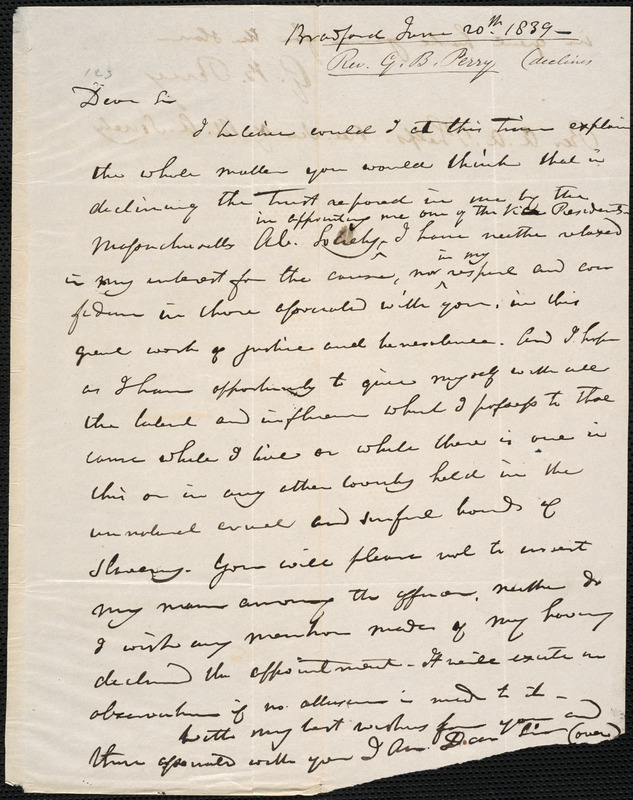 Bradford June 20th. 1839 —
Rev. G. B. Perry (declines
123
Dear Sir
I believe could I at this time explain
the whole matter you would think that in
declining the trust reposed in me by the
in appointing me one of the Vice Presidents
Massachusetts Ab. Society, I have neither relaxed
in my interest for the cause, nor in my respect and con
fidence in those associated with you, in this
great work of justice and benevolence. And I hope
as I have opportunity to give myself with all
the talent and influence which I possess to that
cause while I live or while there is one in
this or in any other Country held in the
unnatural cruel and sinful bonds of
Slavery. You will please not to insert
my name among the officers, neither do
I wish any mention made of my having
declined the appointment - It will excite no
observation if no allusion is made to it -
With my best wishes for you and
those associated with you I am Dear Sir (over)